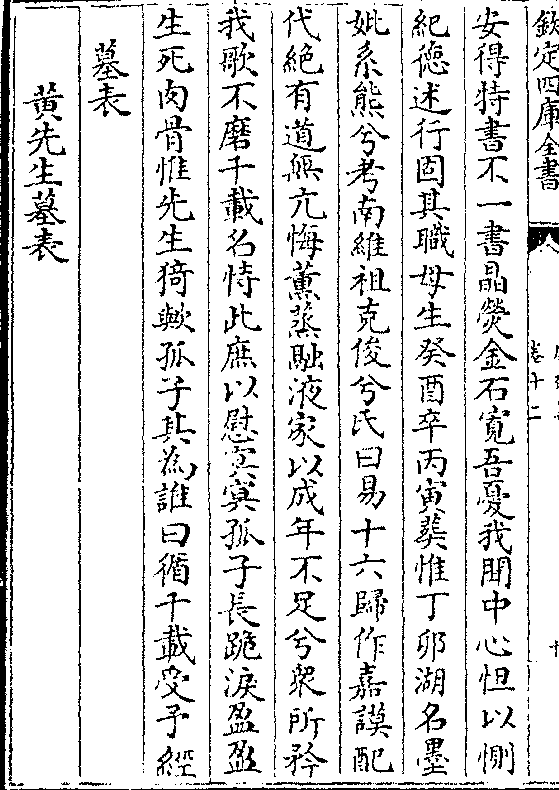 欽定四庫全書
卷十二
安得特書不一書晶熒金石寬吾憂我聞中心怛以惻
紀德述行固其職母生癸酉卒丙寅葬惟丁卯湖名墨
妣系熊兮考南維祖克俊兮氏曰易十六歸作嘉謨配
代絕有道賑亢悔薰蒸融液家以成年不足兮衆所矜
我歌不磨千載名恃此庶以慰冥冥孤子長跪淚盈盈
生死肉骨惟先生猗歟孤子其為誰曰循千載受予經
墓表
黃先生墓表